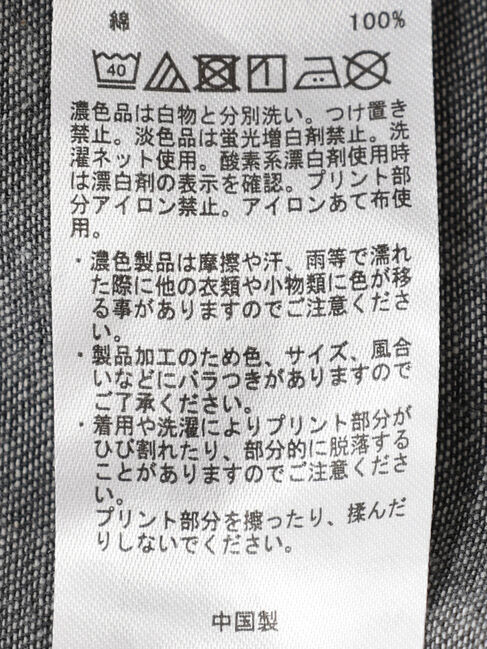 綿 100%
40
濃色品は白物と分別洗い。つけ置き
禁止。淡色品は蛍光増白剤禁止。洗
濯ネット使用。酸素系漂白剤使用時
は漂白剤の表示を確認。プリント部
分アイロン禁止。アイロンあて布使
用。
・濃色製品は摩擦や汗、雨等で濡れ
た際に他の衣類や小物類に色が移
る事がありますのでご注意くださ
い。
・製品加工のため色、サイズ、風合
いなどにバラつきがありますので
ご了承ください。
・着用や洗濯によりプリント部分が
ひび割れたり、部分的に脱落する
ことがありますのでご注意くださ
い。
プリント部分を擦ったり、揉んだ
りしないでください。
中国製